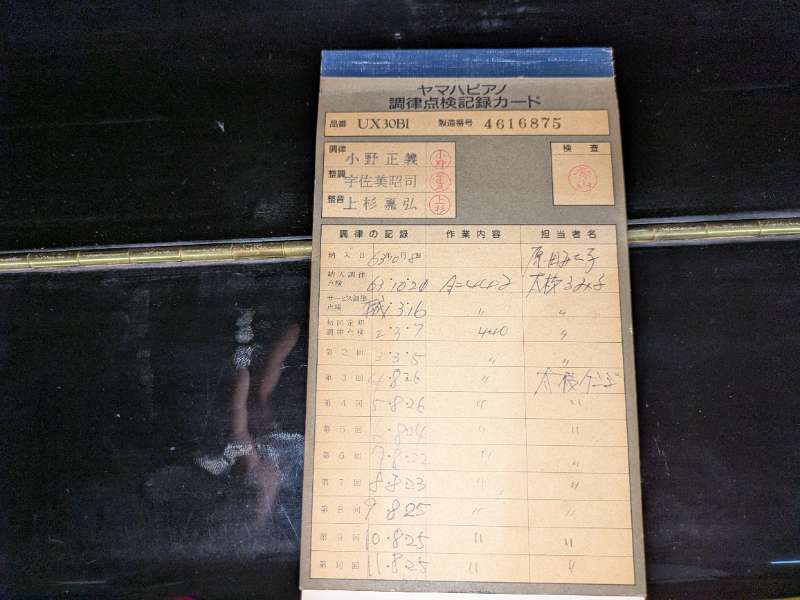 ヤマハピアノ
調律点検記録カード
品番 UX30BI 製造番号 4616875
調律 小野正義 小野
整調 宇佐美昭司
整音 上杉嘉弘 上杉
検査
調律の記録 作業内容 担当者名
納入日
納入調律点検 63.10.20 A=442
サービス調律点検 3.16 〃 〃
初回定期調律点検 2.3.7 440 〃
第2回 3.3.5 〃 〃
第3回 4.8.26 〃
第4回 5.8.26 〃 〃
第5回 8.24 〃 〃
第6回 7.8.22 〃 〃
第7回 8.8.23 〃 〃
第8回 9.8.25 〃 〃
第9回 10.8.25 〃 〃
第10回 11.8.25 〃 〃